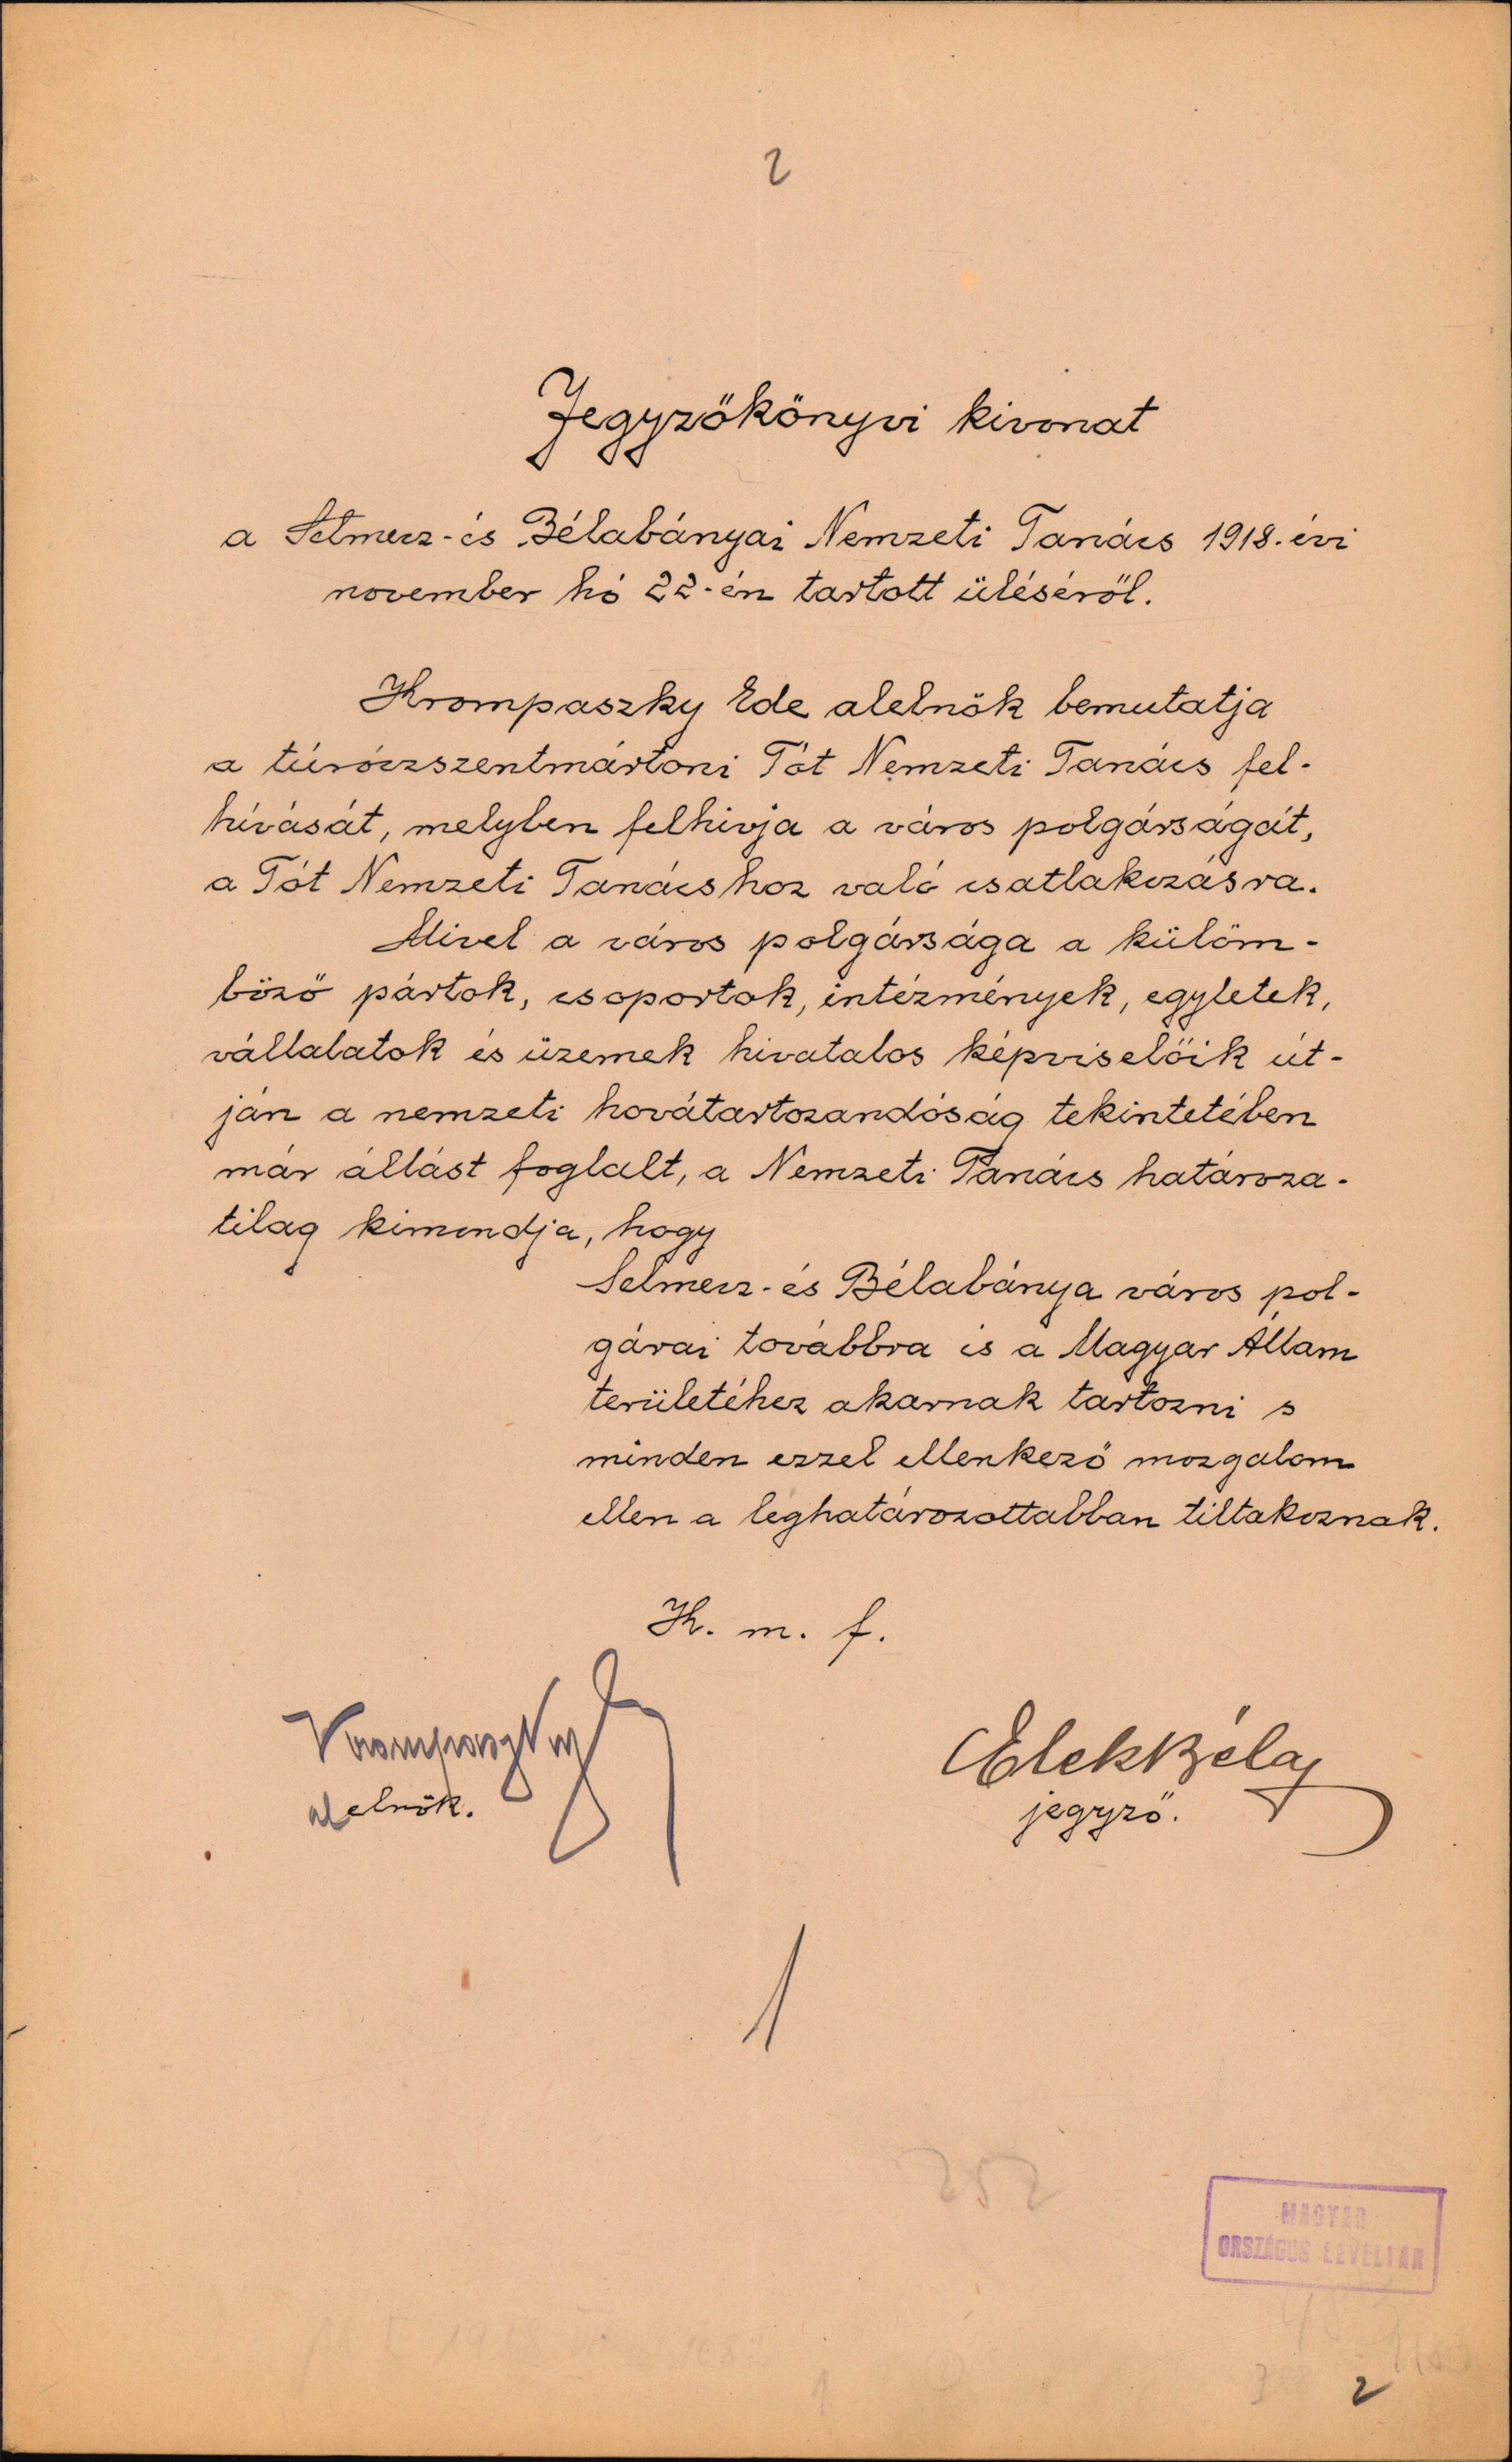 2
Jegyzőkönyvi kivonat
a Selmecz-és Bélabányai Nemzeti Tanács 1918. évi
november hó 22-én tartott üléséről.
Krompaszky Ede alelnök bemutatja
a túróczszentmártoni Tót Nemzeti Tanács fel-
hívását, melyben felhívja a város polgárságát,
a Tót Nemzeti Tanácshoz való csatlakozásra.
Mivel a város polgársága a külöm-
böző pártok, csoportok, intézmények, egyletek,
vállalatok és üzemek hivatalos képviselőik út-
ján a nemzeti hovátartozandóság tekintetében
már állást foglalt, a Nemzeti Tanács határoza-
tilag kimondja, hogy
Selmecz-és Bélabánya város pol-
gárai továbbra is a Magyar Állam
területéhez akarnak tartozni s
minden ezzel ellenkező mozgalom
ellen a leghatározottabban tiltakoznak.
K. m. f.
Krompaszky
alelnök.
Elek Béla
jegyző.
1
252
MAGYAR
ORSZÁGOS LEVÉLTÁR
2